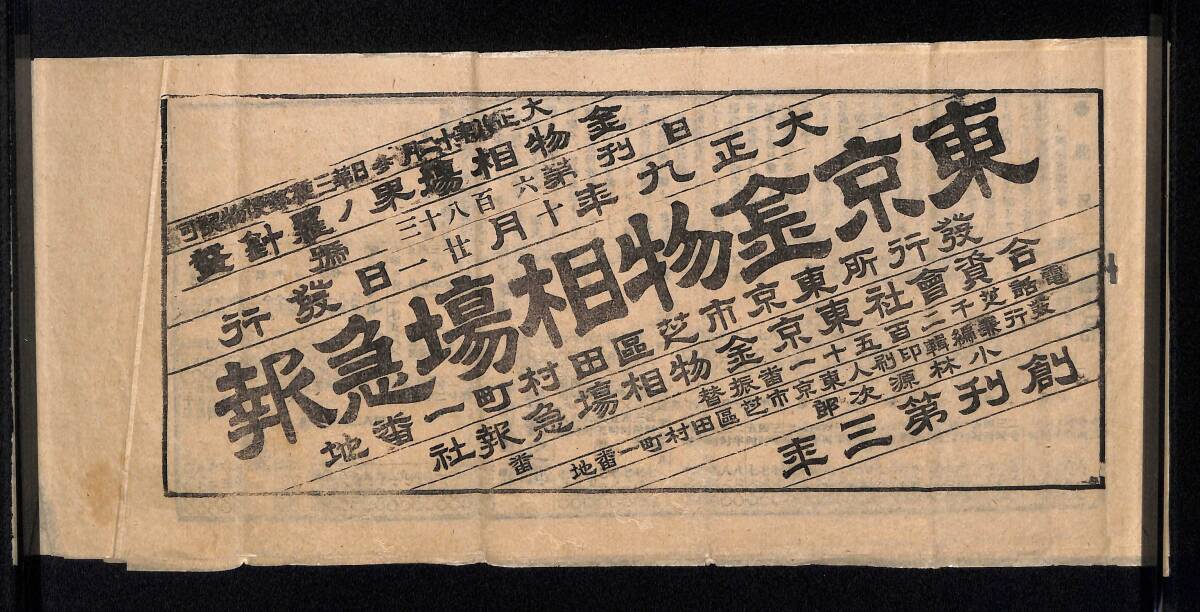 第三種郵便物認可
金物相塲界ノ羅針盤
日刊 第六百八十三號
大正九年十月廿一日發行
東京金物相塲急報
發行所東京市芝區田村町一番地
合資會社東京金物相塲急報社
電話芝千二百五十一番振替 番
發行兼編輯印刷人東京市芝區田村町一番地
小林源次郎
創刊第三年